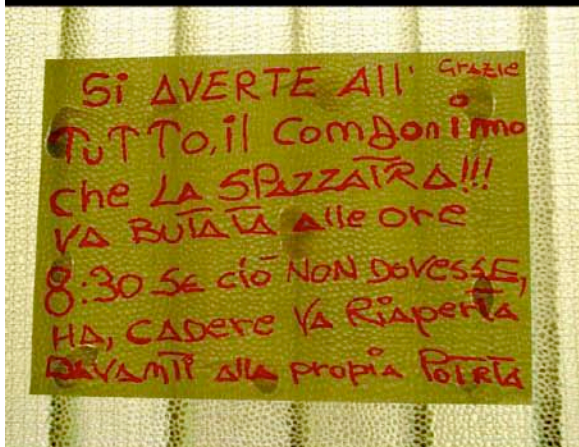 Grazie
Si AVERTE All'
TUTTO, il Comdonimo
che LA SPAZZATRA!!!
VA BUTATA Alle ore
8:30 SE ciò NON DOVESSE,
HA, CADere VA Riaperta
DAVAMTI alla propia POTRTA